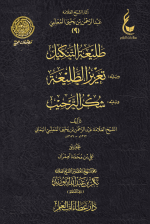 آثار الشيخ العلامة
عبد الرحمن بن يحيى المعلمي
(٩)
طليعة التنكيل
ويليه
تعزيز الطليعة
ويليه
شكر الترحيب
تأليف
الشيخ العلامة عبد الرحمن بن يحيى المعلمي اليماني
تحقيق
علي بن محمد العمران
بكر بن عبد الله أبو زيد
دار عالم الفوائد